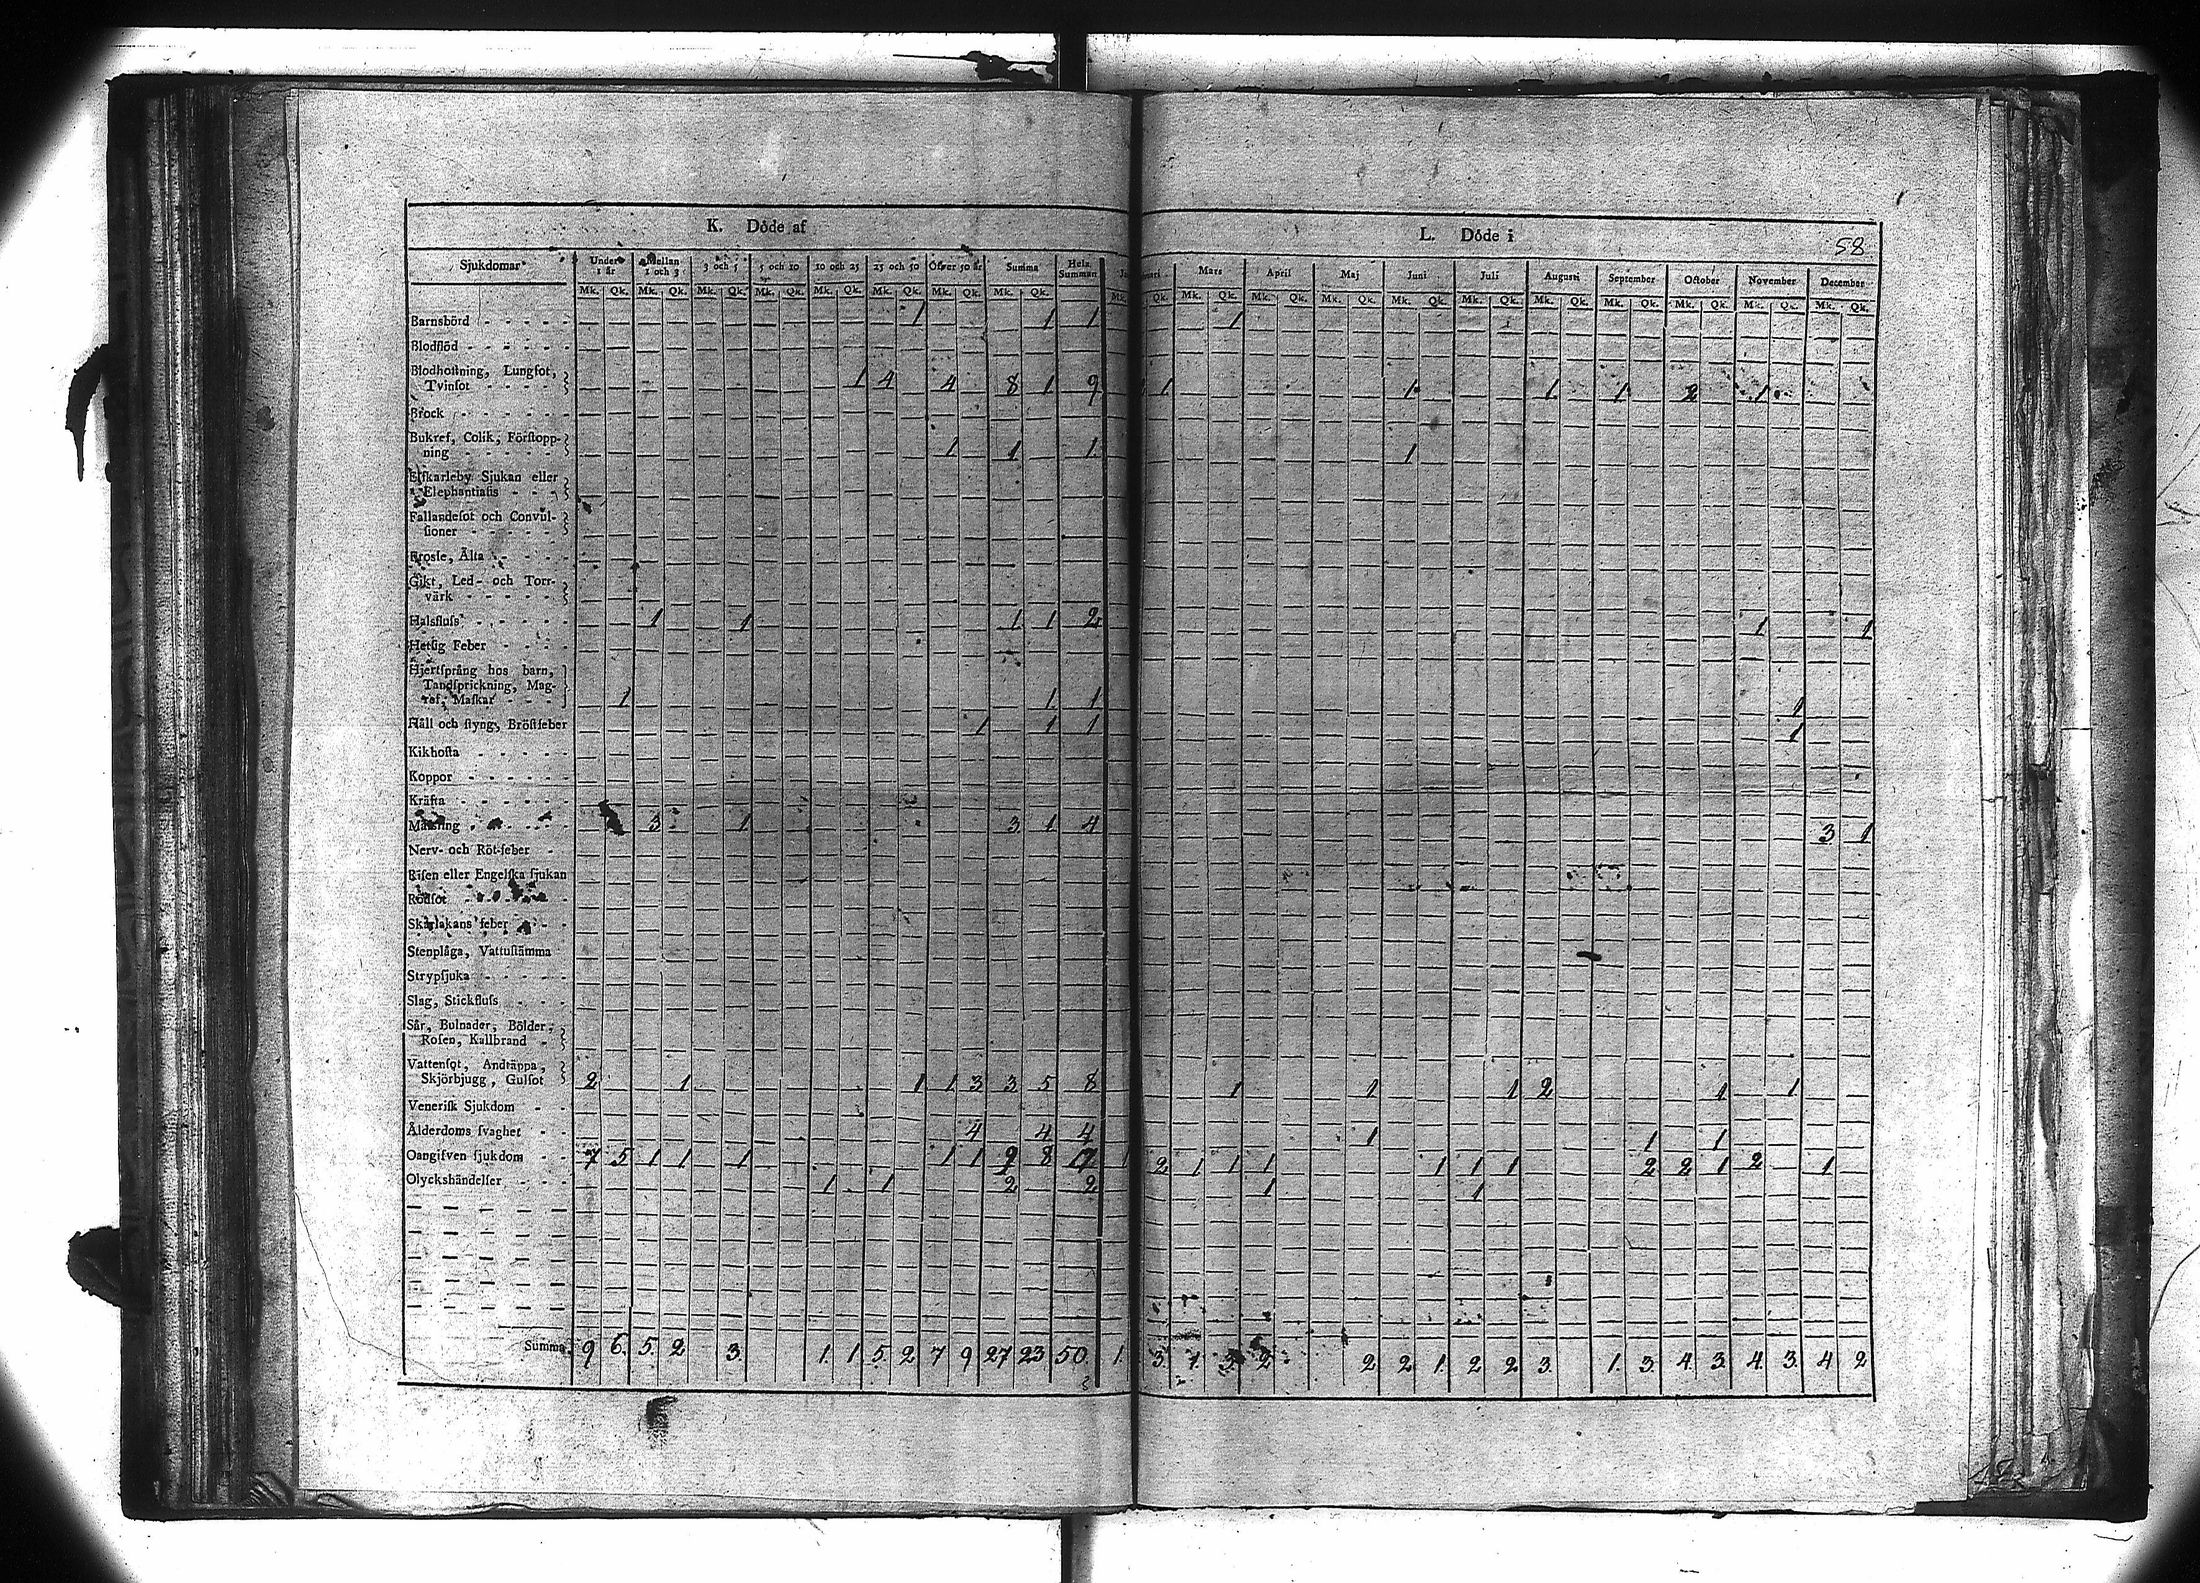 K. Döde af
L. Döde i
58
Sjukdomar
Under 1 år
Mellan 1 och 3
3 och 5
5 och 10
10 och 25
25 och 50
Öfver 50 år
Summa
Hela Summan
Mars
April
Maj
Juni
Juli
Augusti
September
October
November
December
Mk. Qk. Mk. Qk. Mk. Qk. Mk. Qk. Mk. Qk. Mk. Qk. Mk. Qk. Mk. Qk. Mk. Qk. Mk. Qk. Mk. Qk. Mk. Qk. Mk. Qk. Mk. Qk. Mk. Qk. Mk. Qk. Mk. Qk. Mk. Qk. Mk. Qk.
Barnsbörd 1 1 1 1
Blodflöd
Blodhoſtning, Lungſot,
Tvinſot 1 4 4 8 1 9 1 1 1 1 2 1
Brock
Bukref, Colik, Förſtopp-
ning 1 1 1 1
Elfkarleby Sjukan eller
Elephantiaſis
Fallandeſot och Convul-
ſioner
Froſſe, Älta
Gikt, Led- och Torr-
värk
Halsfluſs 1 1 1 1 2 1 1
Hetſig Feber
Hjertſprång hos barn,
Tandſprickning, Mag-
ref, Maſkar 1 1 1 1
Håll och ſtyng, Bröſtfeber 1 1 1 1
Kikhoſta
Koppor
Kräfta
Mäſsling 3 1 3 1 4 3 1
Nerv- och Röt-feber
Riſen eller Engelſka ſjukan
Rödſot
Skarlakans feber
Stenplåga, Vattuſtämma
Strypſjuka
Slag, Stickfluſs
Sår, Bulnader, Bölder,
Roſen, Kallbrand
Vattenſot, Andtäppa,
Skjörbjugg, Gulſot 2 1 1 1 3 3 5 8 1 1 1 2 1 1
Veneriſk Sjukdom
Ålderdoms ſvaghet 4 4 4 1 1 1
Oangifven ſjukdom 7 5 1 1 1 1 1 9 8 17 1 2 1 1 1 1 1 1 2 2 1 2 1
Olyckshändelſer 1 1 2 2 1 1
Summa 9 6. 5. 2 3. 1. 1. 5. 2 7 9 27 23 50. 1. 3. 1. 3. 2 2 2 1. 2 2 3. 1. 3. 4. 3. 4. 3. 4 2